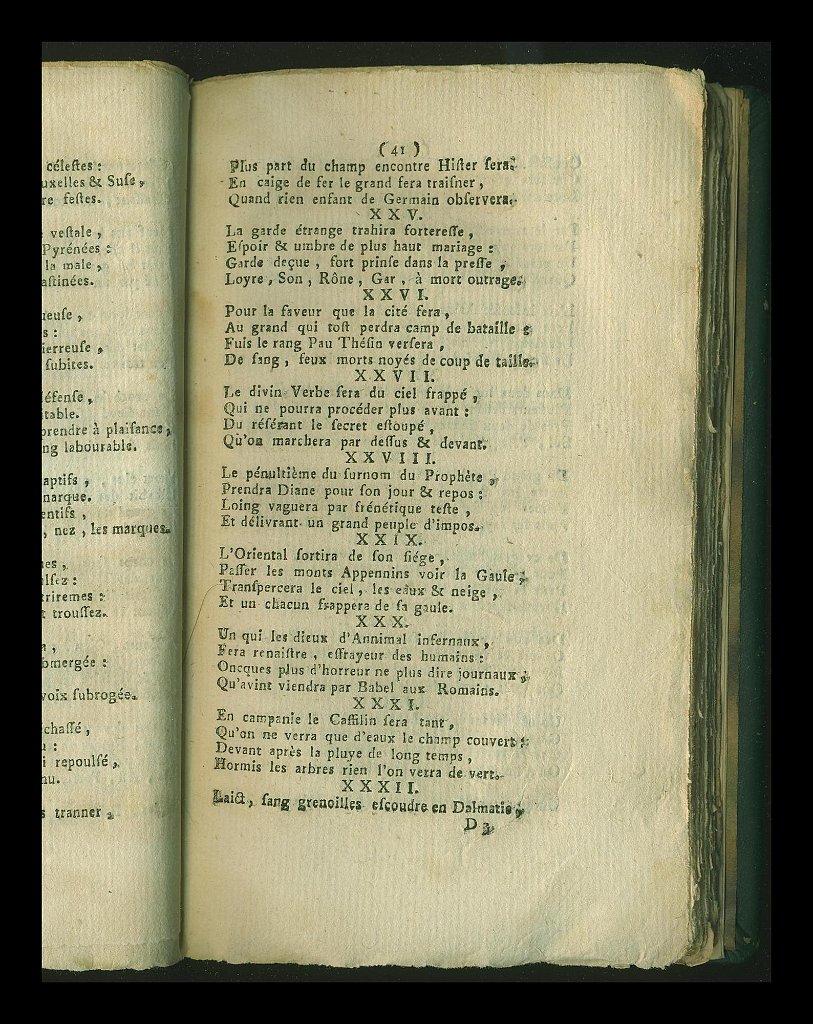 céleſtes :
uxelles & Suſe,
re feſtes.
veſtale,
Pyrénées :
la male,
aſtinées.
ieuſe,
s :
ierreuſe,
ſubites.
éfenſe,
itable.
prendre à plaiſance,
ng labourable.
aptifs,
narque.
entifs,
, nez, les marques.
es,
lſez :
triremes :
t trouſſez.
,
bmergée :
voix ſubrogée.
chaſſé,
u :
i repoulſé,
nu.
s tranner,
( 41 )
Plus part du champ encontre Hiſter ſera.
En caige de fer le grand fera traiſner,
Quand rien enfant de Germain obſervera.
XXV.
La garde étrange trahira forterefſe,
Eſpoir & umbre de plus haut mariage :
Garde deçue, fort prinſe dans la preſſe,
Loyre, Son, Rône, Gar, à mort outrage.
XXVI.
Pour la faveur que la cité fera,
Au grand qui toſt perdra camp de bataille :
Fuis le rang Pau Théſin verſera,
De ſang, feux morts noyés de coup de taille.
XXVII.
Le divin Verbe ſera du ciel frappé,
Qui ne pourra procéder plus avant :
Du réſérant le ſecret eſtoupé,
Qu'on marchera par deſſus & devant.
XXVIII.
Le pénultième du ſurnom du Prophète,
Prendra Diane pour ſon jour & repos :
Loing vaguera par frénétique teſte,
Et délivrant un grand peuple d'impos.
XXIX.
L'Oriental ſortira de ſon ſiége,
Paſſer les monts Appennins voir la Gaule,
Tranſpercera le ciel, les eaux & neige,
Et un chacun frappera de ſa gaule.
XXX.
Un qui les dieux d'Annimal infernaux,
Fera renaiſtre, effrayeur des humains :
Oncques plus d'horreur ne plus dire journaux,
Qu'avint viendra par Babel aux Romains.
XXXI.
En campanie le Caſſilin ſera tant,
Qu'on ne verra que d'eaux le champ couvert :
Devant après la pluye de long temps,
Hormis les arbres rien l'on verra de vert.
XXXII.
Laict, ſang grenoilles eſcoudre en Dalmatie,
D 3